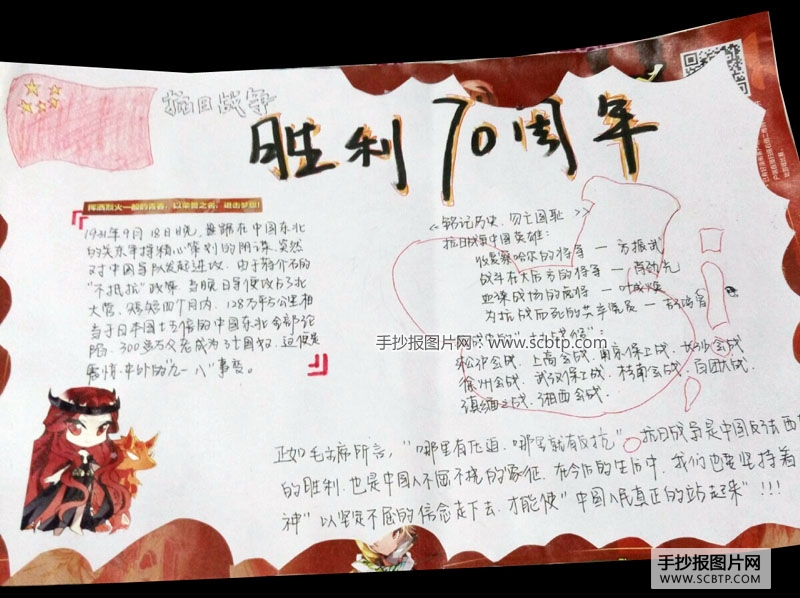 抗日战争
胜利70周年
挥洒烈火一般的青春，以荣誉之名，进击梦想！
1931年9月18日晚，盘踞在中国东北
的关东军精心策划的阴谋，突然
对中国军队发起进攻，由于蒋介石的
“不抵抗”政策 当晚日军便攻占了北
大营，短短四个月内，128万平方公里相
当于日本国土五倍的中国东北全部沦
陷，300多万父老成为亡国奴，这便是
震惊中外的“九一八”事变。
《铭记历史，勿亡国耻》
抗日战争中国英雄：
收复察哈尔的将军 — 方振武
战斗在大后方的将军 —
血染战场的虎将 —
为抗战而死的共产党员 —
手抄报图片网：www.scbtp.com
松沪会战，上高会战，南京保卫战，长沙会战
徐州会战，武汉保卫战，桂南会战，百团大战，
滇缅之战，湘西会战。
正如毛主席所言，“哪里有压迫，哪里就有反抗”。抗日战争是中国反法西
的胜利，也是中国人不屈不挠的象征，在今后的生活中，我们也要坚持着
神”以坚定不屈的信念走下去，才能使“中国人民真正的站起来”！！！
手抄报图片网
WWW.SCBTP.COM